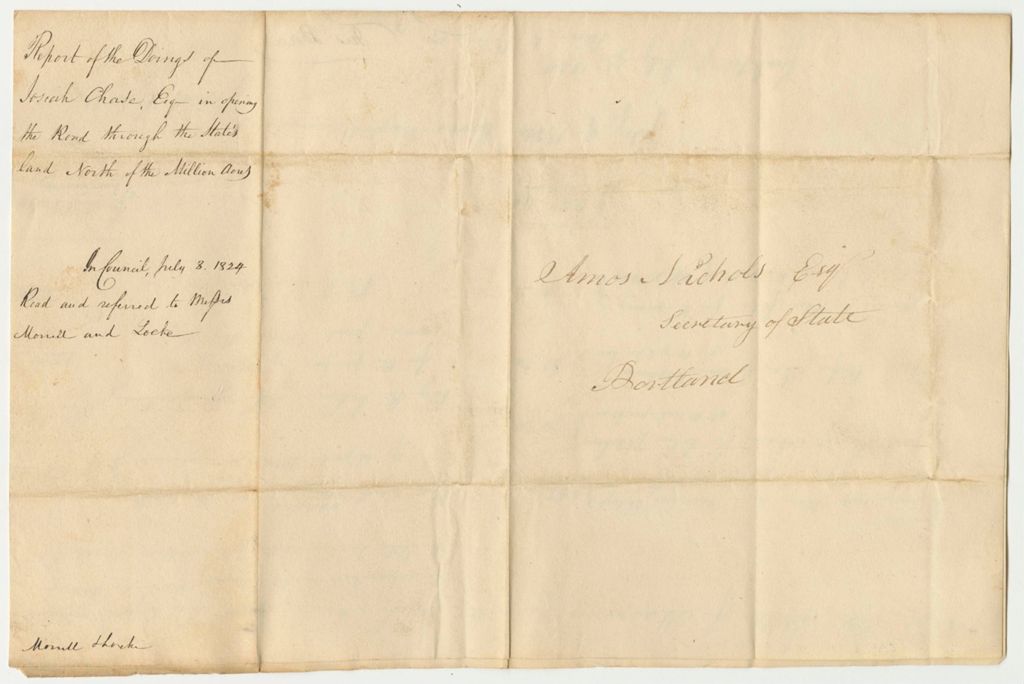 Report of the Doings of
Josiah Chase, Esq in opening
the Road through the State's
land North of the Million Acres
In Council, July 8. 1824
Read and referred to Messrs
Morrill and Locke
Morrill & Locke
Amos Nichols Esq
Secretary of State
Portland